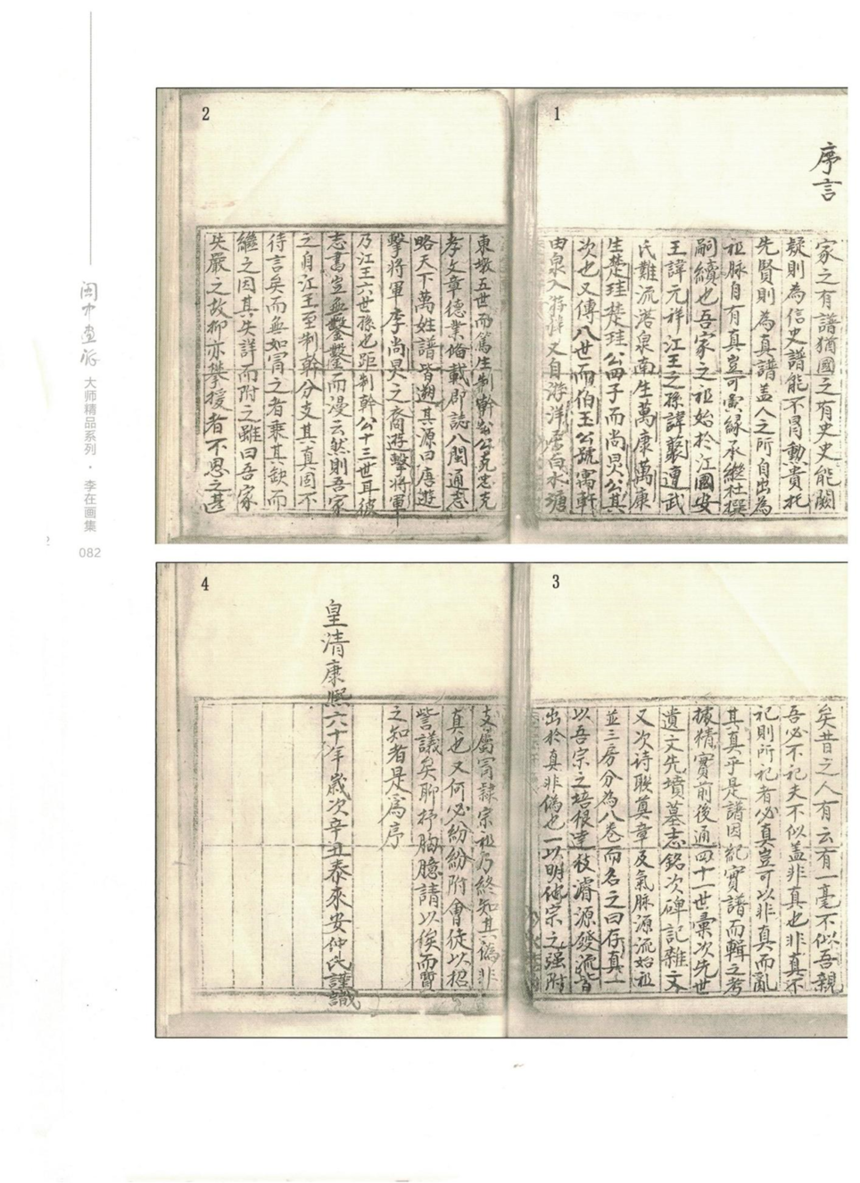 闽中画派
大师精品系列·李在画集
082
1
序言
家之有譜猶國之有史史能闕
疑則為信史譜能不冒動貴托
先賢則為真譜蓋人之所自出為
祖脉自有真豈可夤緣承繼杜撰
嗣續也吾家之祖始於江國安
王諱元祥江王之孫諱褧遭武
氏難流落泉南生萬康萬康
生楚珪楚珪公四子而尚昊公其
次也又傳八世而伯玉公號寓軒
由泉入游洋又自游洋居白水塘
2
東墩五世而篤生制幹公克忠克
孝文章德業備載郡誌八閩通志
略天下萬姓譜皆遡其源曰唐遊
擊將軍李尚昊之裔遊擊將軍
乃江王六世孫也距制幹公十三世耳彼
志書豈無鑿鑿而漫云然則吾家
之自江王至制幹分支其真固不
待言矣而無如冐之者乘其缺而
繼之因其失詳而附之雖曰吾家
失嚴之故抑亦攀援者不思之甚
3
矣昔之人有云有一毫不似吾親
吾必不祀夫不似蓋非真也非真不
祀則所祀者必真豈可以非真而亂
其真乎是譜因紀實譜而輯之考
據精實前後通四十一世彙次先世
遺文先墳墓志銘次碑記雜文
又次诗聯奠章及氣脉源流始祖
並三房分為八卷而名之曰存真一
以吾宗之培根達枝濬源發流皆
出於真非偽也一以明他宗之强附
4
支屬冐隸宗祖乃終知其偽非
真也又何必紛紛附會徒以招
訾議矣聊抒胸臆請以俟而買
之知者是爲序
皇清康熙六十年歲次辛丑泰來安仲氏謹識